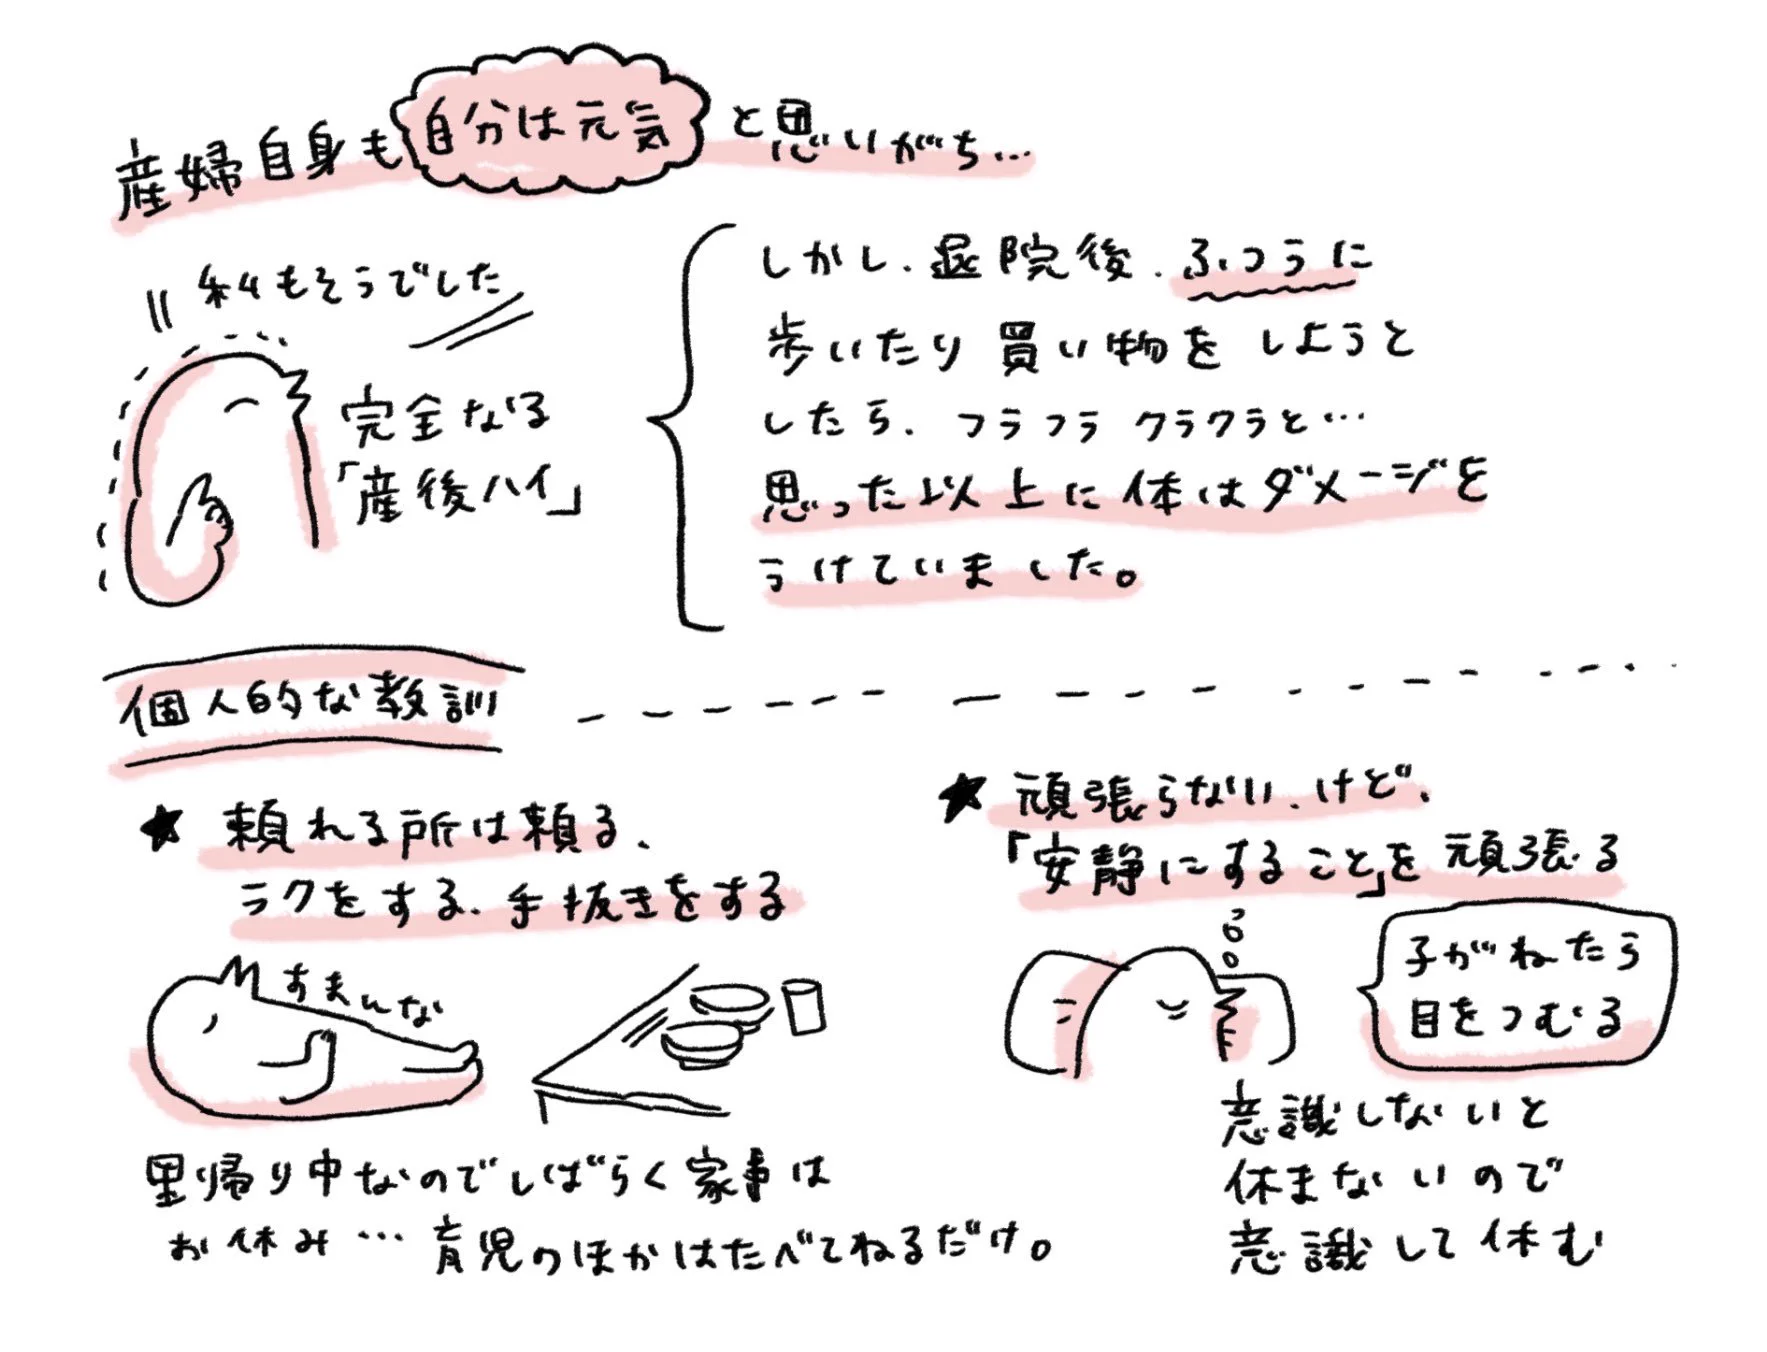 産婦自身も自分は元気と思いがち…
私もそうでした
完全なる
「産後ハイ」
しかし、退院後、ふつうに
歩いたり買い物をしようと
したら、フラフラクラクラと…
思った以上に体はダメージを
うけていました。
個人的な教訓
★ 頼れる所は頼る、
ラクをする、手抜きをする
すまんな
里帰り中なのでしばらく家事は
お休み…育児のほかはたべてねるだけ。
★ 頑張らない、けど、
「安静にすること」を頑張る
子がねたら
目をつむる
意識しないと
休まないので
意識して休む